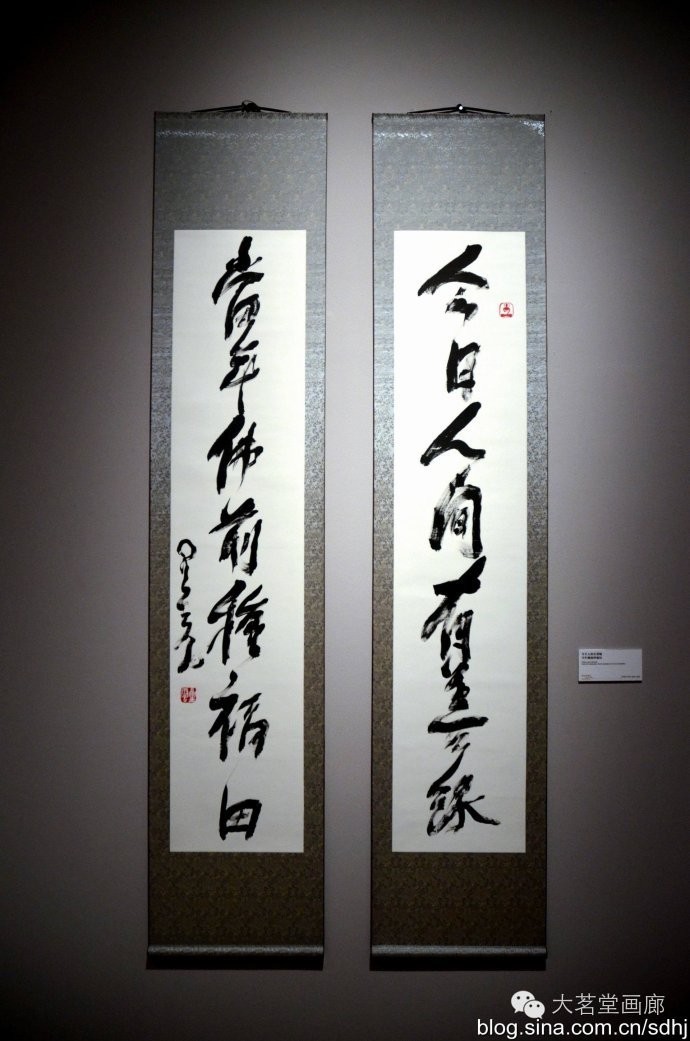 今日人間有善緣
當年佛前種福田
大茗堂画廊
blog.sina.com.cn/sdhj